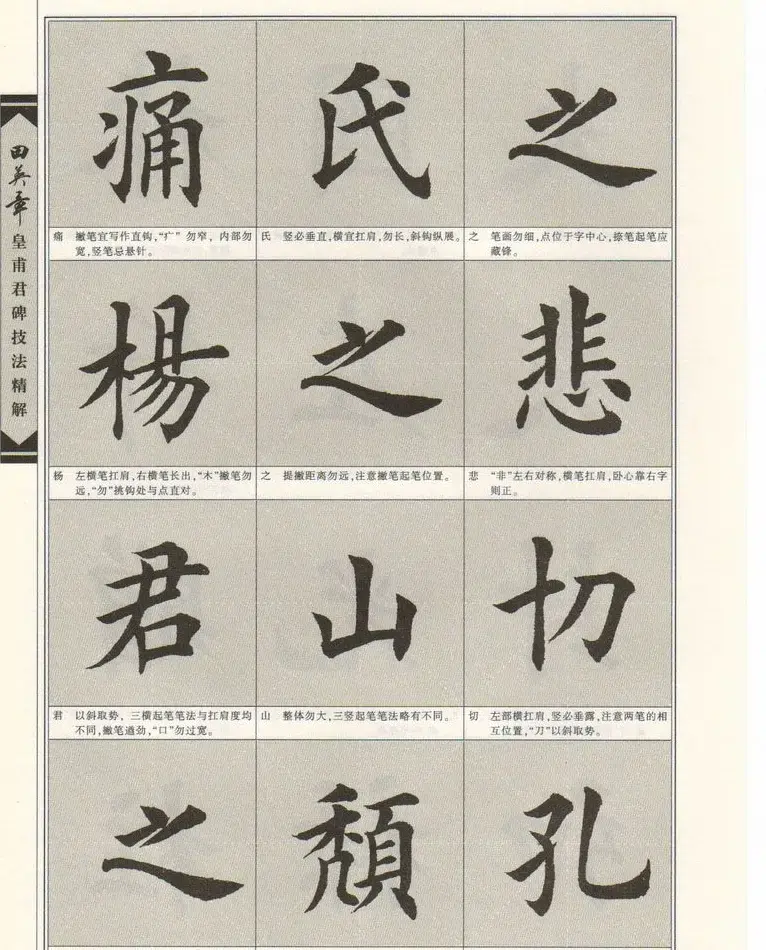 田英章
皇甫君碑技法精解
之
之 笔画勿细,点位于字中心,捺笔起笔应
藏锋。
悲
悲 “非”左右对称,横笔扛肩,卧心靠右字
则正。
切
切 左部横扛肩,竖必垂露,注意两笔的相
互位置,“刀”以斜取势。
孔
氏
氏 竖必垂直,横宜扛肩,勿长,斜钩纵展。
之
之 提撇距离勿远,注意撇笔起笔位置。
山
山 整体勿大,三竖起笔笔法略有不同。
頹
痛
痛 撇笔宜写作直钩,“疒”勿窄,内部勿
宽,竖笔忌悬针。
楊
杨 左横笔扛肩,右横笔长出,“木”撇笔勿
远,“勿”挑钩处与点直对。
君
君 以斜取势,三横起笔笔法与扛肩度均
不同,撇笔遒劲,“口”勿过宽。
之